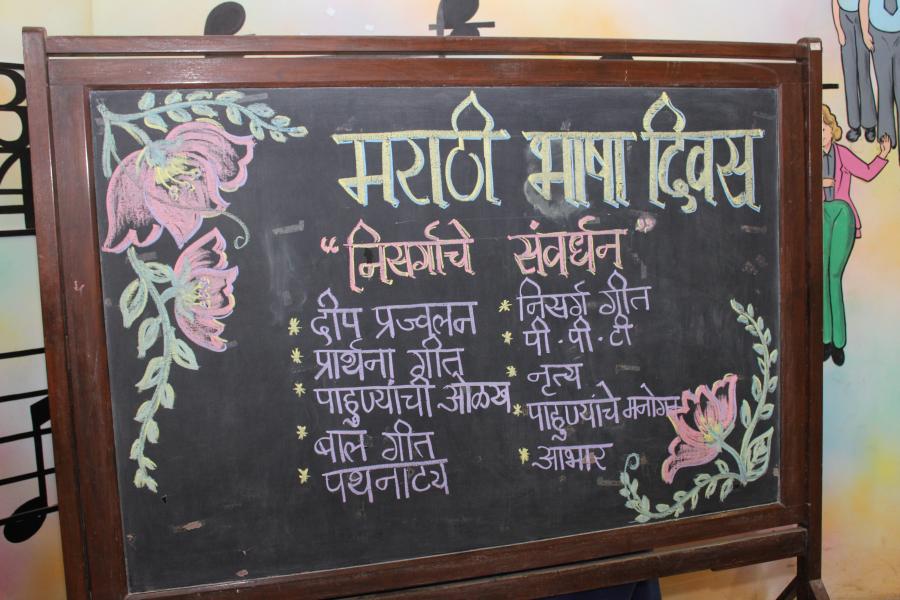 मराठी भाषा दिवस
“निसर्गाचे संवर्धन”
* दीप प्रज्वलन
* प्रार्थना गीत
* पाहुण्यांची ओळख
* बाल गीत
* पथनाट्य
* निसर्ग गीत
* पी.पी.टी
* नृत्य
* पाहुण्यांचे मनोगत
* आभार